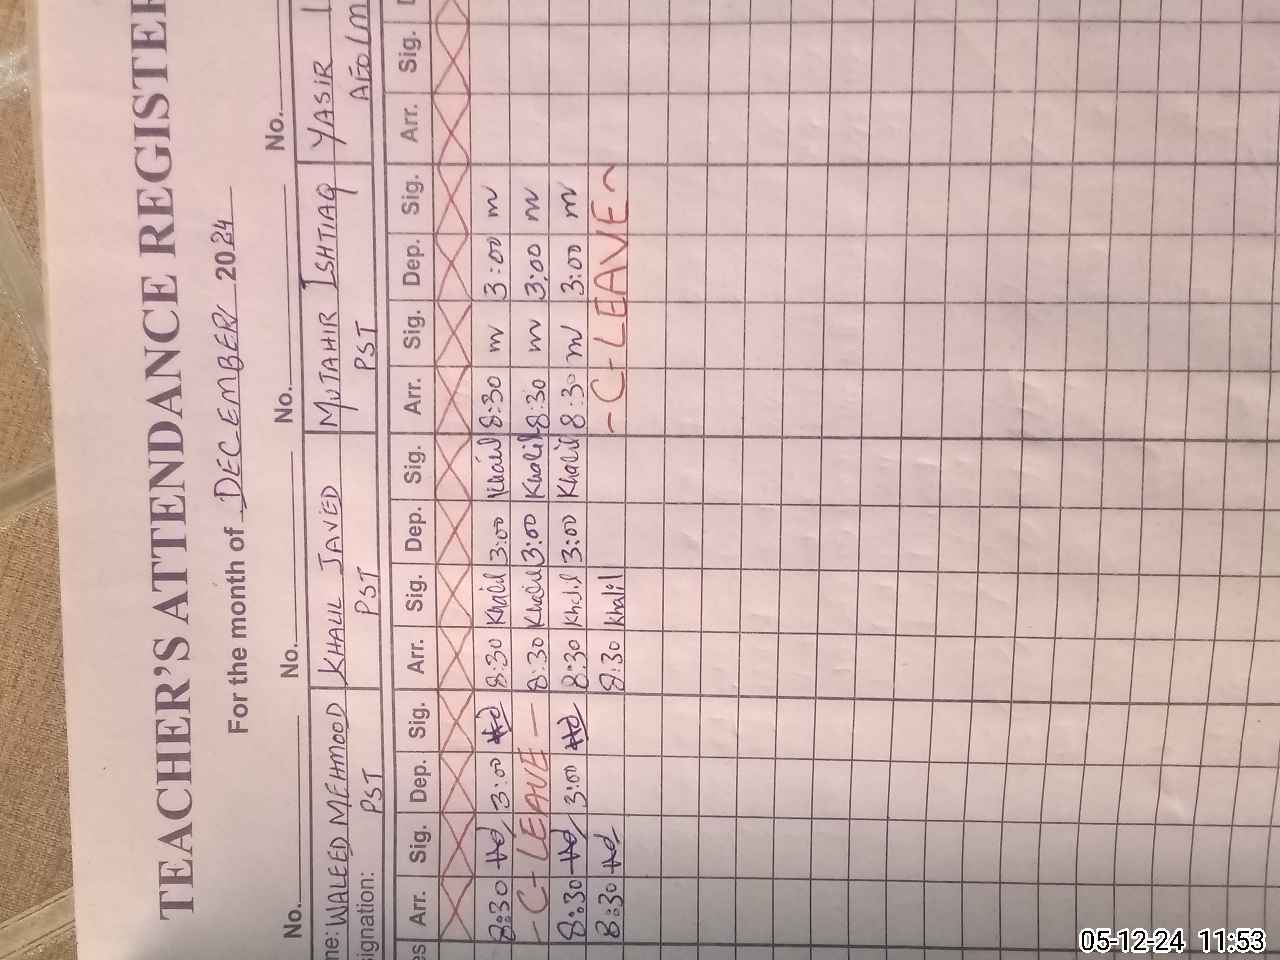 TEACHER'S ATTENDANCE REGISTER
For the month of DECEMBER 2024
No. No. No. No.
WALEED MEHMOOD KHALIL JAVED MUTAHIR ISHTIAQ YASIR
ignation: PST PST PST
Arr. Sig. Dep. Sig. Arr. Sig. Dep. Sig. Arr. Sig. Dep. Sig. Arr. Sig.
8:30 3:00 8:30 Khalil 3:00 Khalil 8:30 m 3:00 m
- C - LEAVE - 8:30 Khalil 3:00 Khalil 8:30 m 3:00 m
8:30 3:00 8:30 Khalil 3:00 Khalil 8:30 m 3:00 m
8:30 8:30 Khalil - C - LEAVE ~
05-12-24 11:53